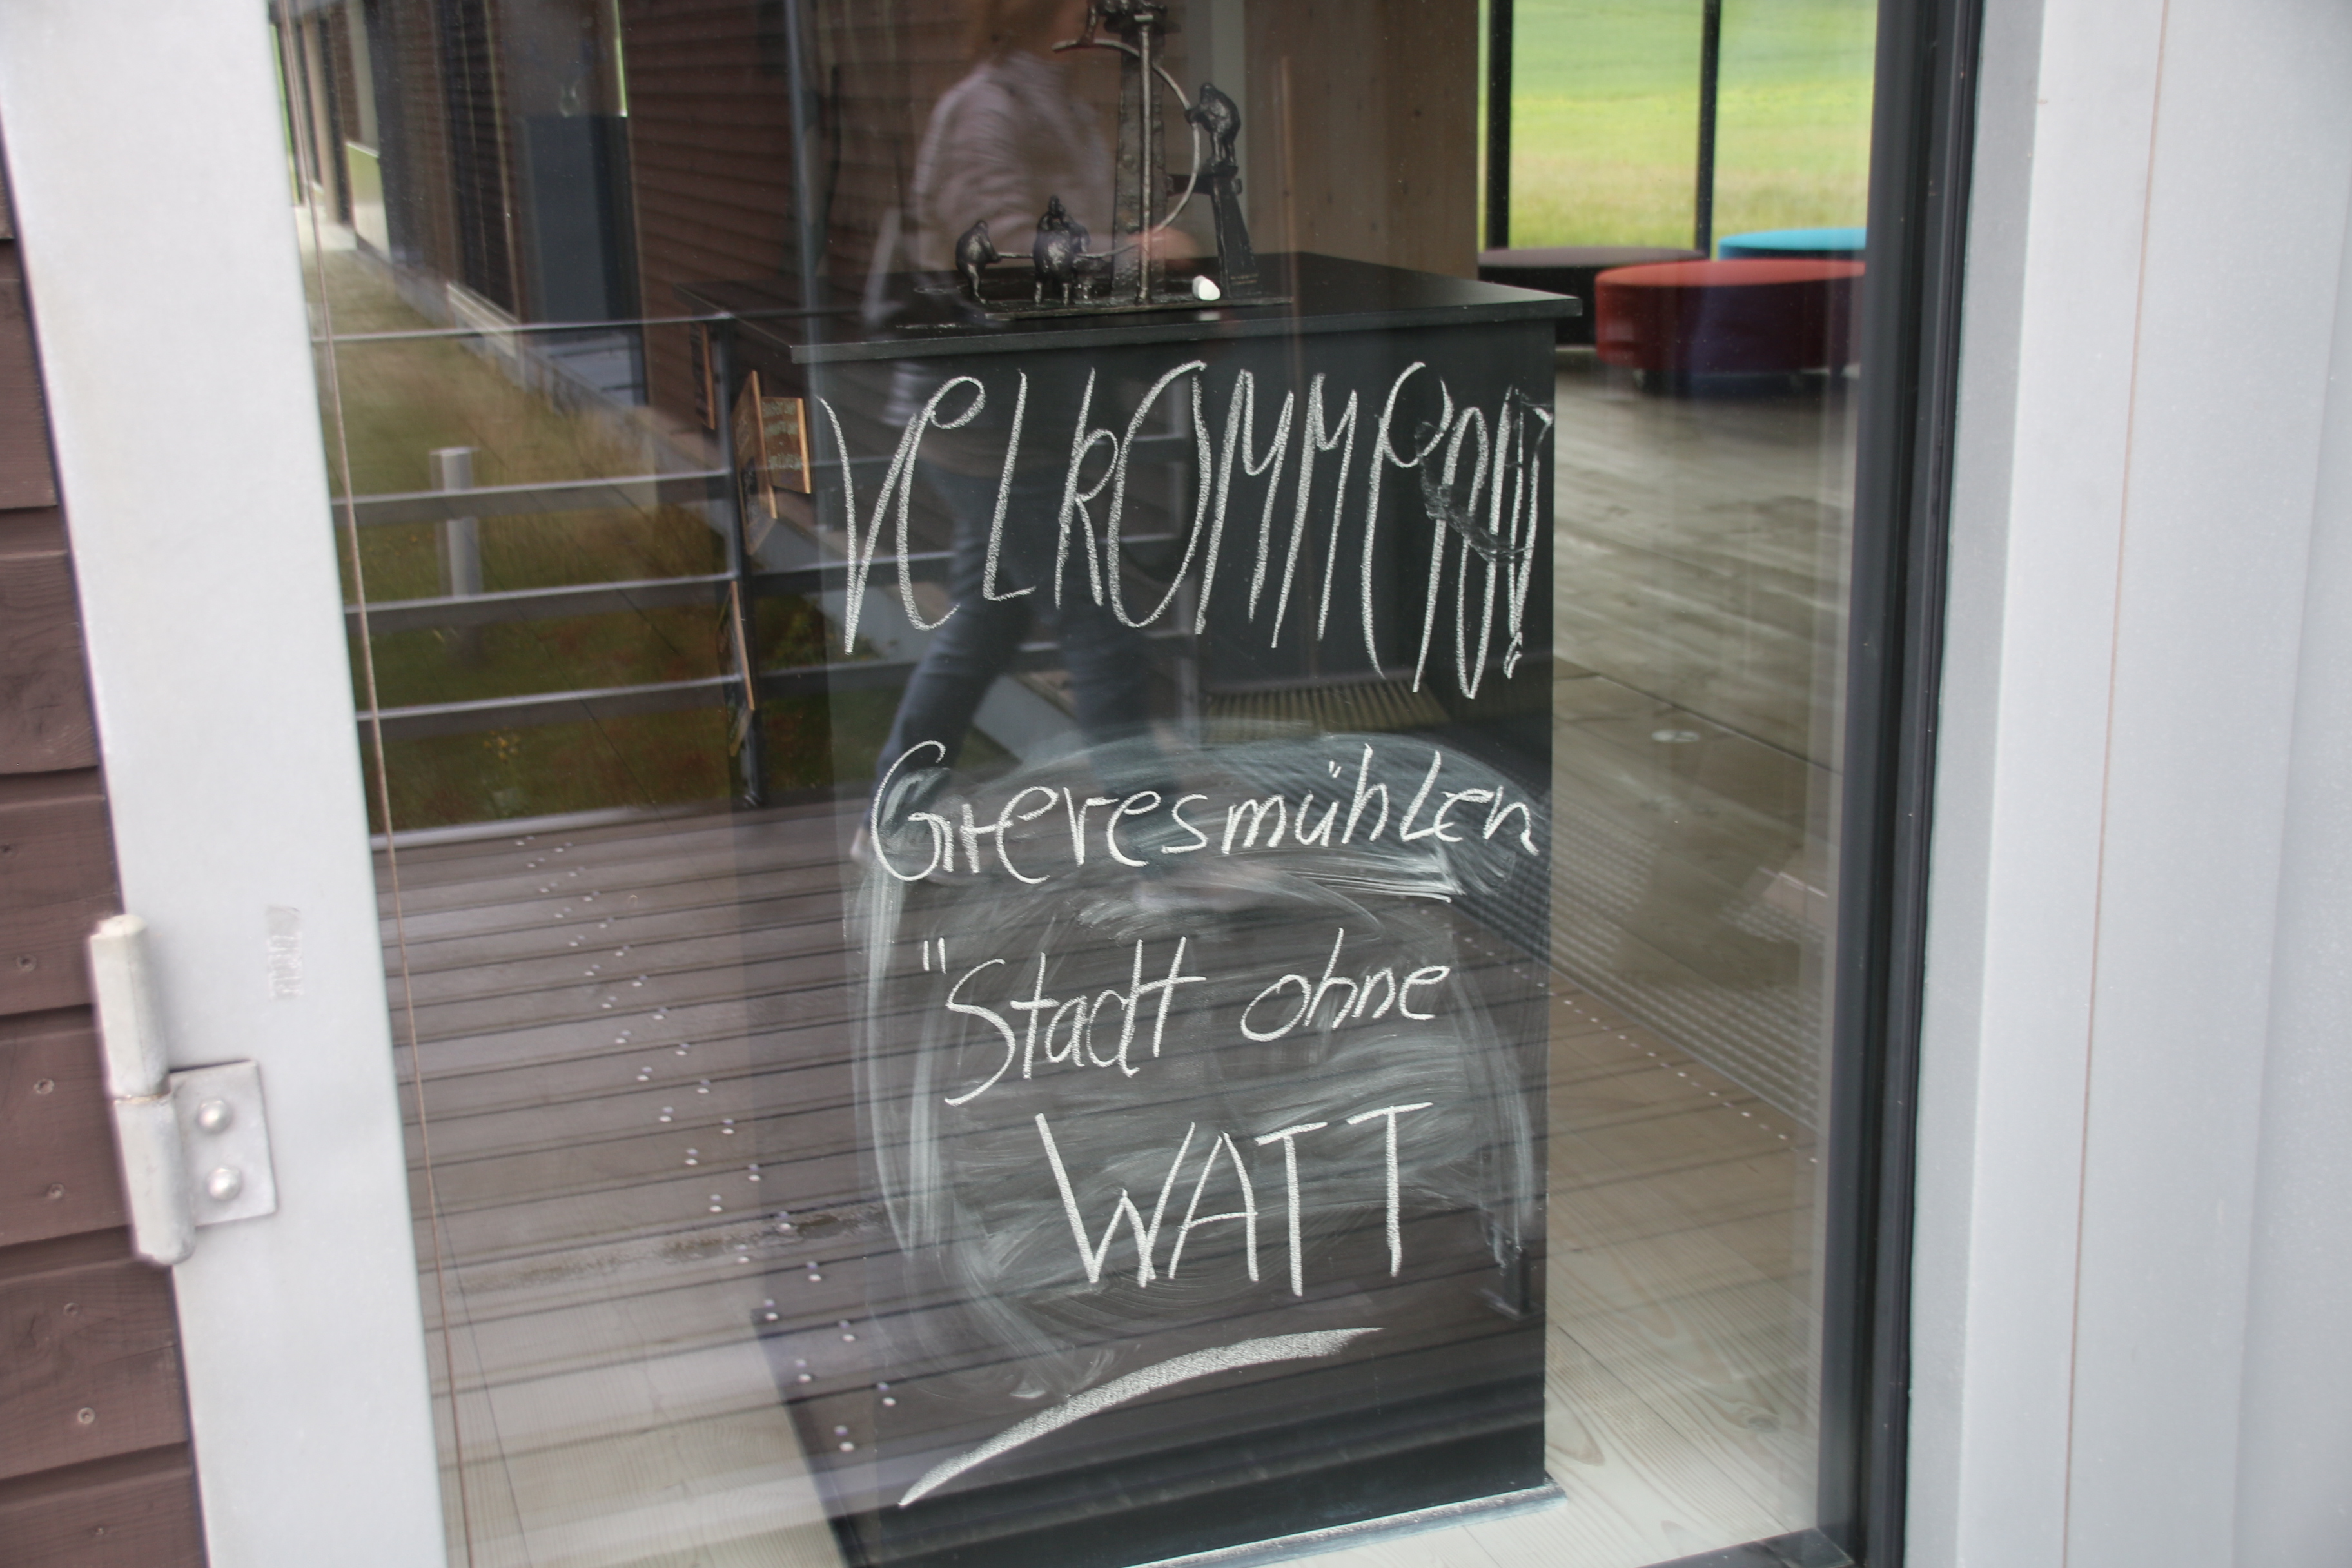 VELKOMMEN!
Greresmühlen
"Stadt ohne
WATT